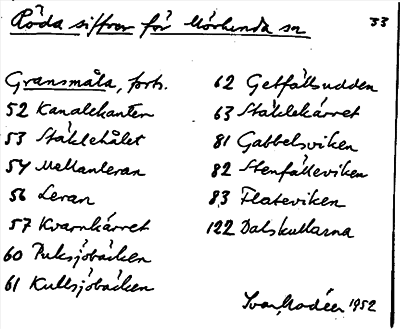 Röda siffror för Mörkenda sn
33
Gransmåla, forts.
52 Kanalekanten
53 Stäklehålet
54 Mellanleran
56 Leran
57 Kvarnkärret
60 Puksjöbäcken
61 Kullsjöbäcken
62 Getfällsudden
63 Stäklekärret
81 Gabbelsviken
82 Stenfälleviken
83 Flateviken
122 Dalskullarna
Ivar Modéer 1952